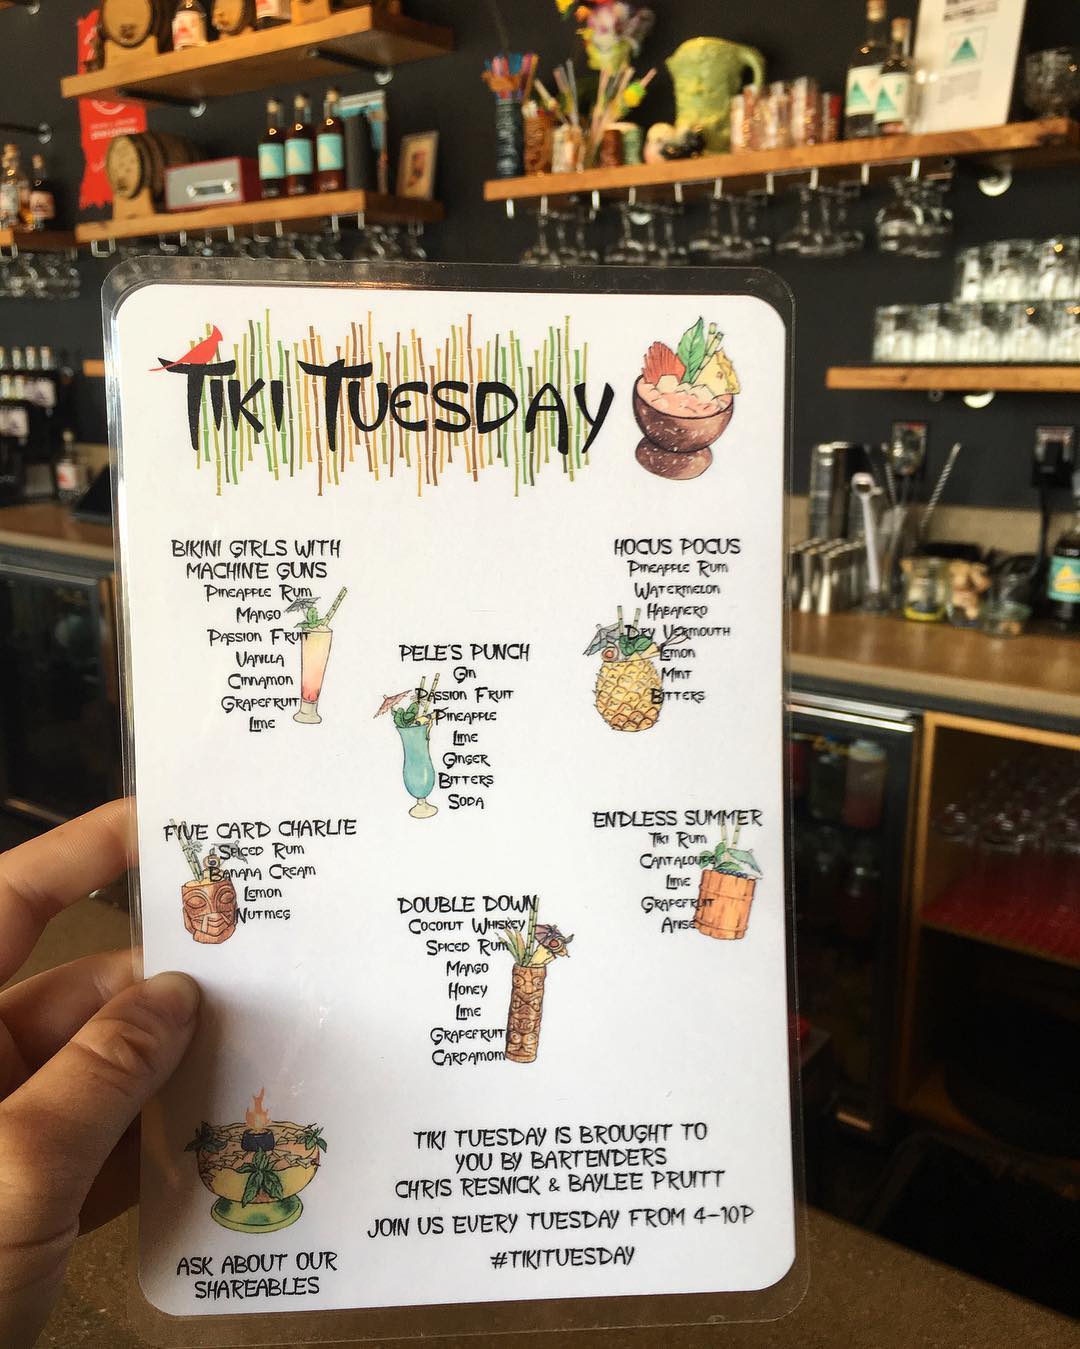 TIKI TUESDAY
BIKINI GIRLS WITH
MACHINE GUNS
PINEAPPLE RUM
MANGO
PASSION FRUIT
VANILLA
CINNAMON
GRAPEFRUIT
LIME
HOCUS POCUS
PINEAPPLE RUM
WATERMELON
HABANERO
DRY VERMOUTH
LEMON
MINT
BITTERS
PELE'S PUNCH
GIN
PASSION FRUIT
PINEAPPLE
LIME
GINGER
BITTERS
SODA
FIVE CARD CHARLIE
SPICED RUM
BANANA CREAM
LEMON
NUTMEG
ENDLESS SUMMER
TIKI RUM
CANTALOUPE
LIME
GRAPEFRUIT
ANISE
DOUBLE DOWN
COCONUT WHISKEY
SPICED RUM
MANGO
HONEY
LIME
GRAPEFRUIT
CARDAMOM
TIKI TUESDAY IS BROUGHT TO
YOU BY BARTENDERS
CHRIS RESNICK & BAYLEE PRUITT
JOIN US EVERY TUESDAY FROM 4-10P
#TIKITUESDAY
ASK ABOUT OUR
SHAREABLES